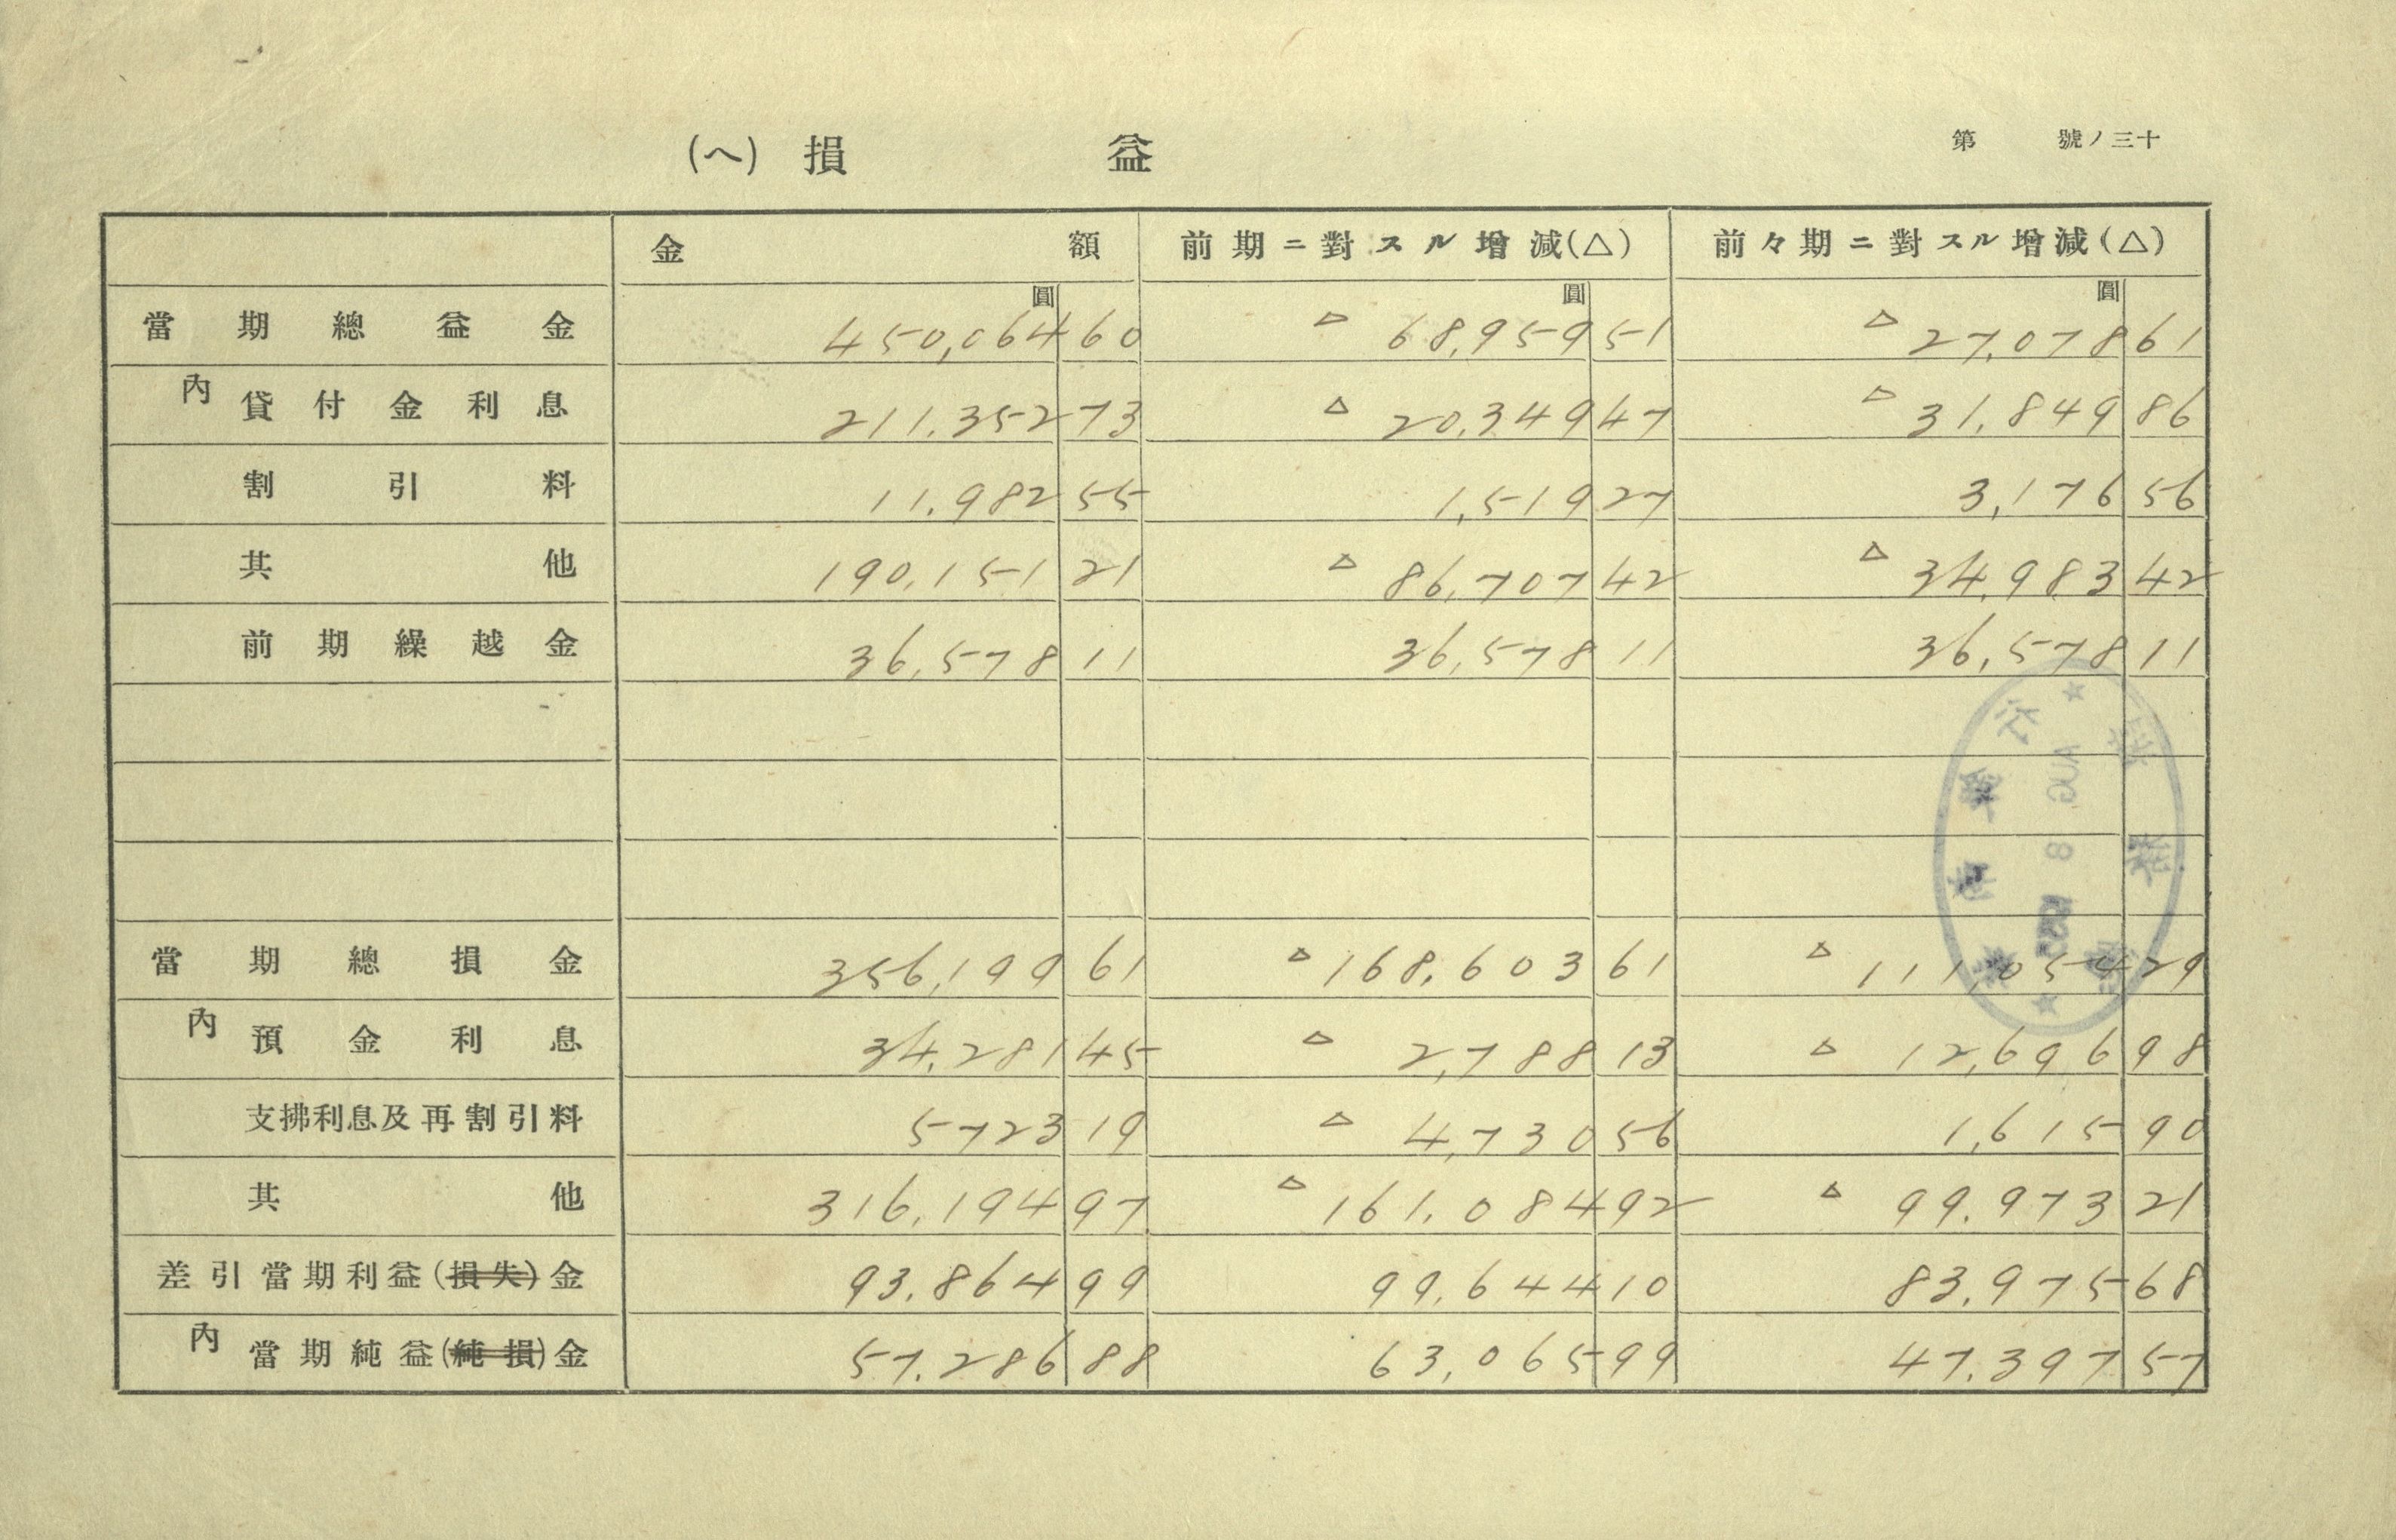 第 號ノ三十
(ヘ) 損 益
金 額 前期ニ對スル增減(△) 前々期ニ對スル增減(△)
圓 圓 圓
當期總益金 450,064 60 △ 68,959 51 △ 27,078 61
內 貸付金利息 211,352 73 △ 20,349 47 △ 31,849 86
割引料 11,982 55 1,519 27 3,176 56
其他 190,151 21 △ 86,707 42 △ 34,983 42
前期繰越金 36,578 11 36,578 11 36,578 11
AUG 8
當期總損金 356,199 61 △ 168,603 61 △ 111,054 29
內 預金利息 34,281 45 △ 2,788 13 △ 12,696 98
支拂利息及再割引料 5723 19 △ 4,730 56 1,615 90
其他 316,194 97 △ 161,084 92 △ 99,973 21
差引當期利益(損失)金 93,864 99 99,644 10 83,975 68
內 當期純益(純損)金 57,286 88 63,065 99 47,397 57